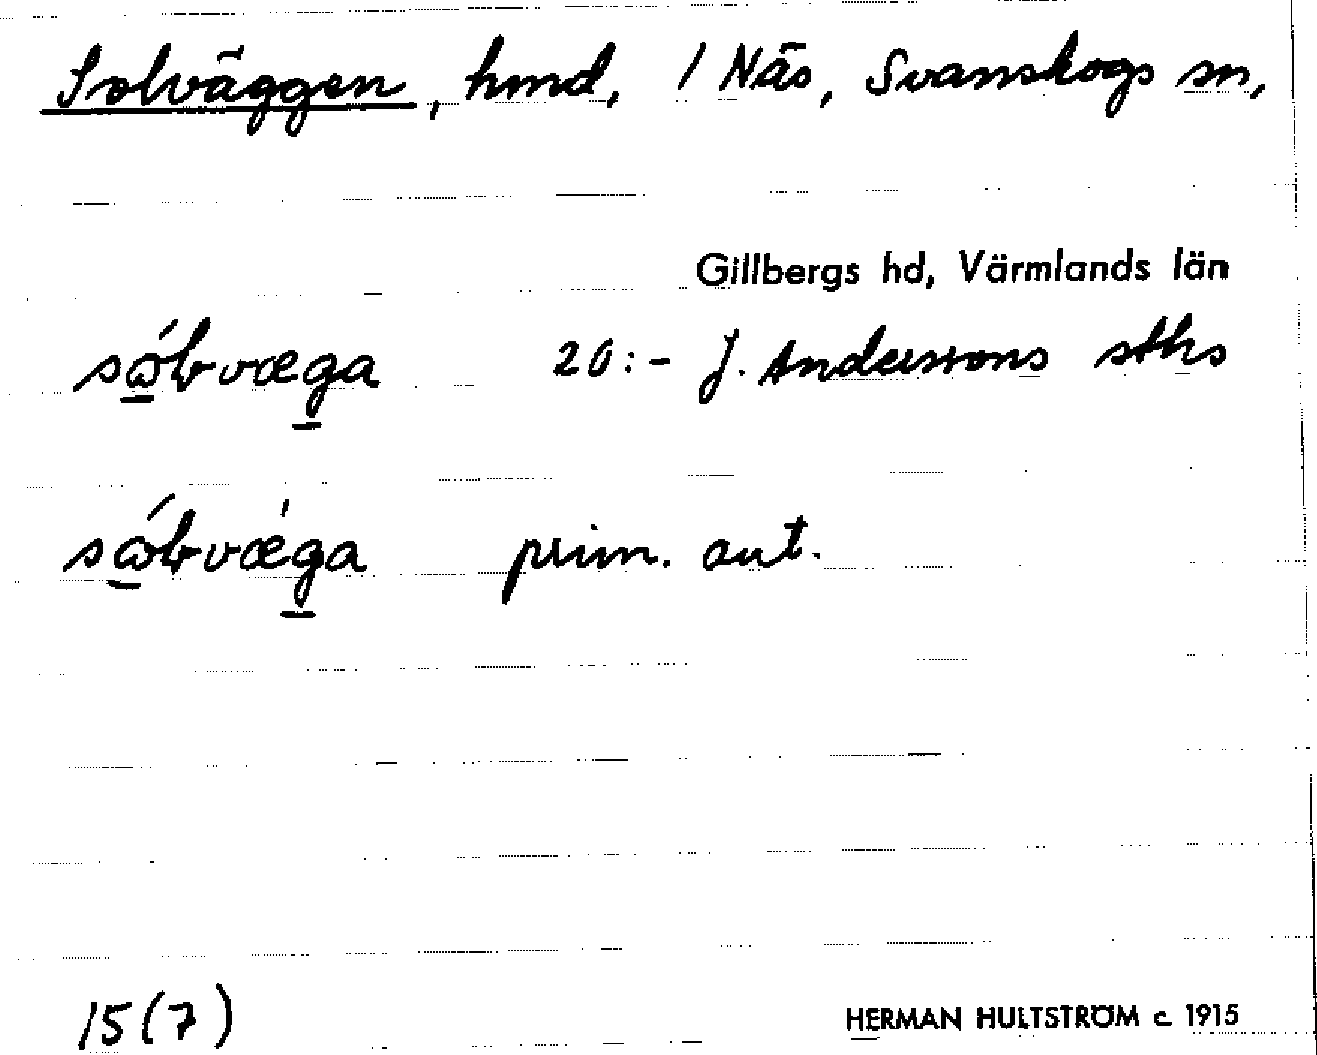 Solväggen, hmd, / Näs, Svanskogs sn,
Gillbergs hd, Värmlands län
20:- J. Anderssons sths
prim. ant.
15(7)
HERMAN HULTSTRÖM c. 1915